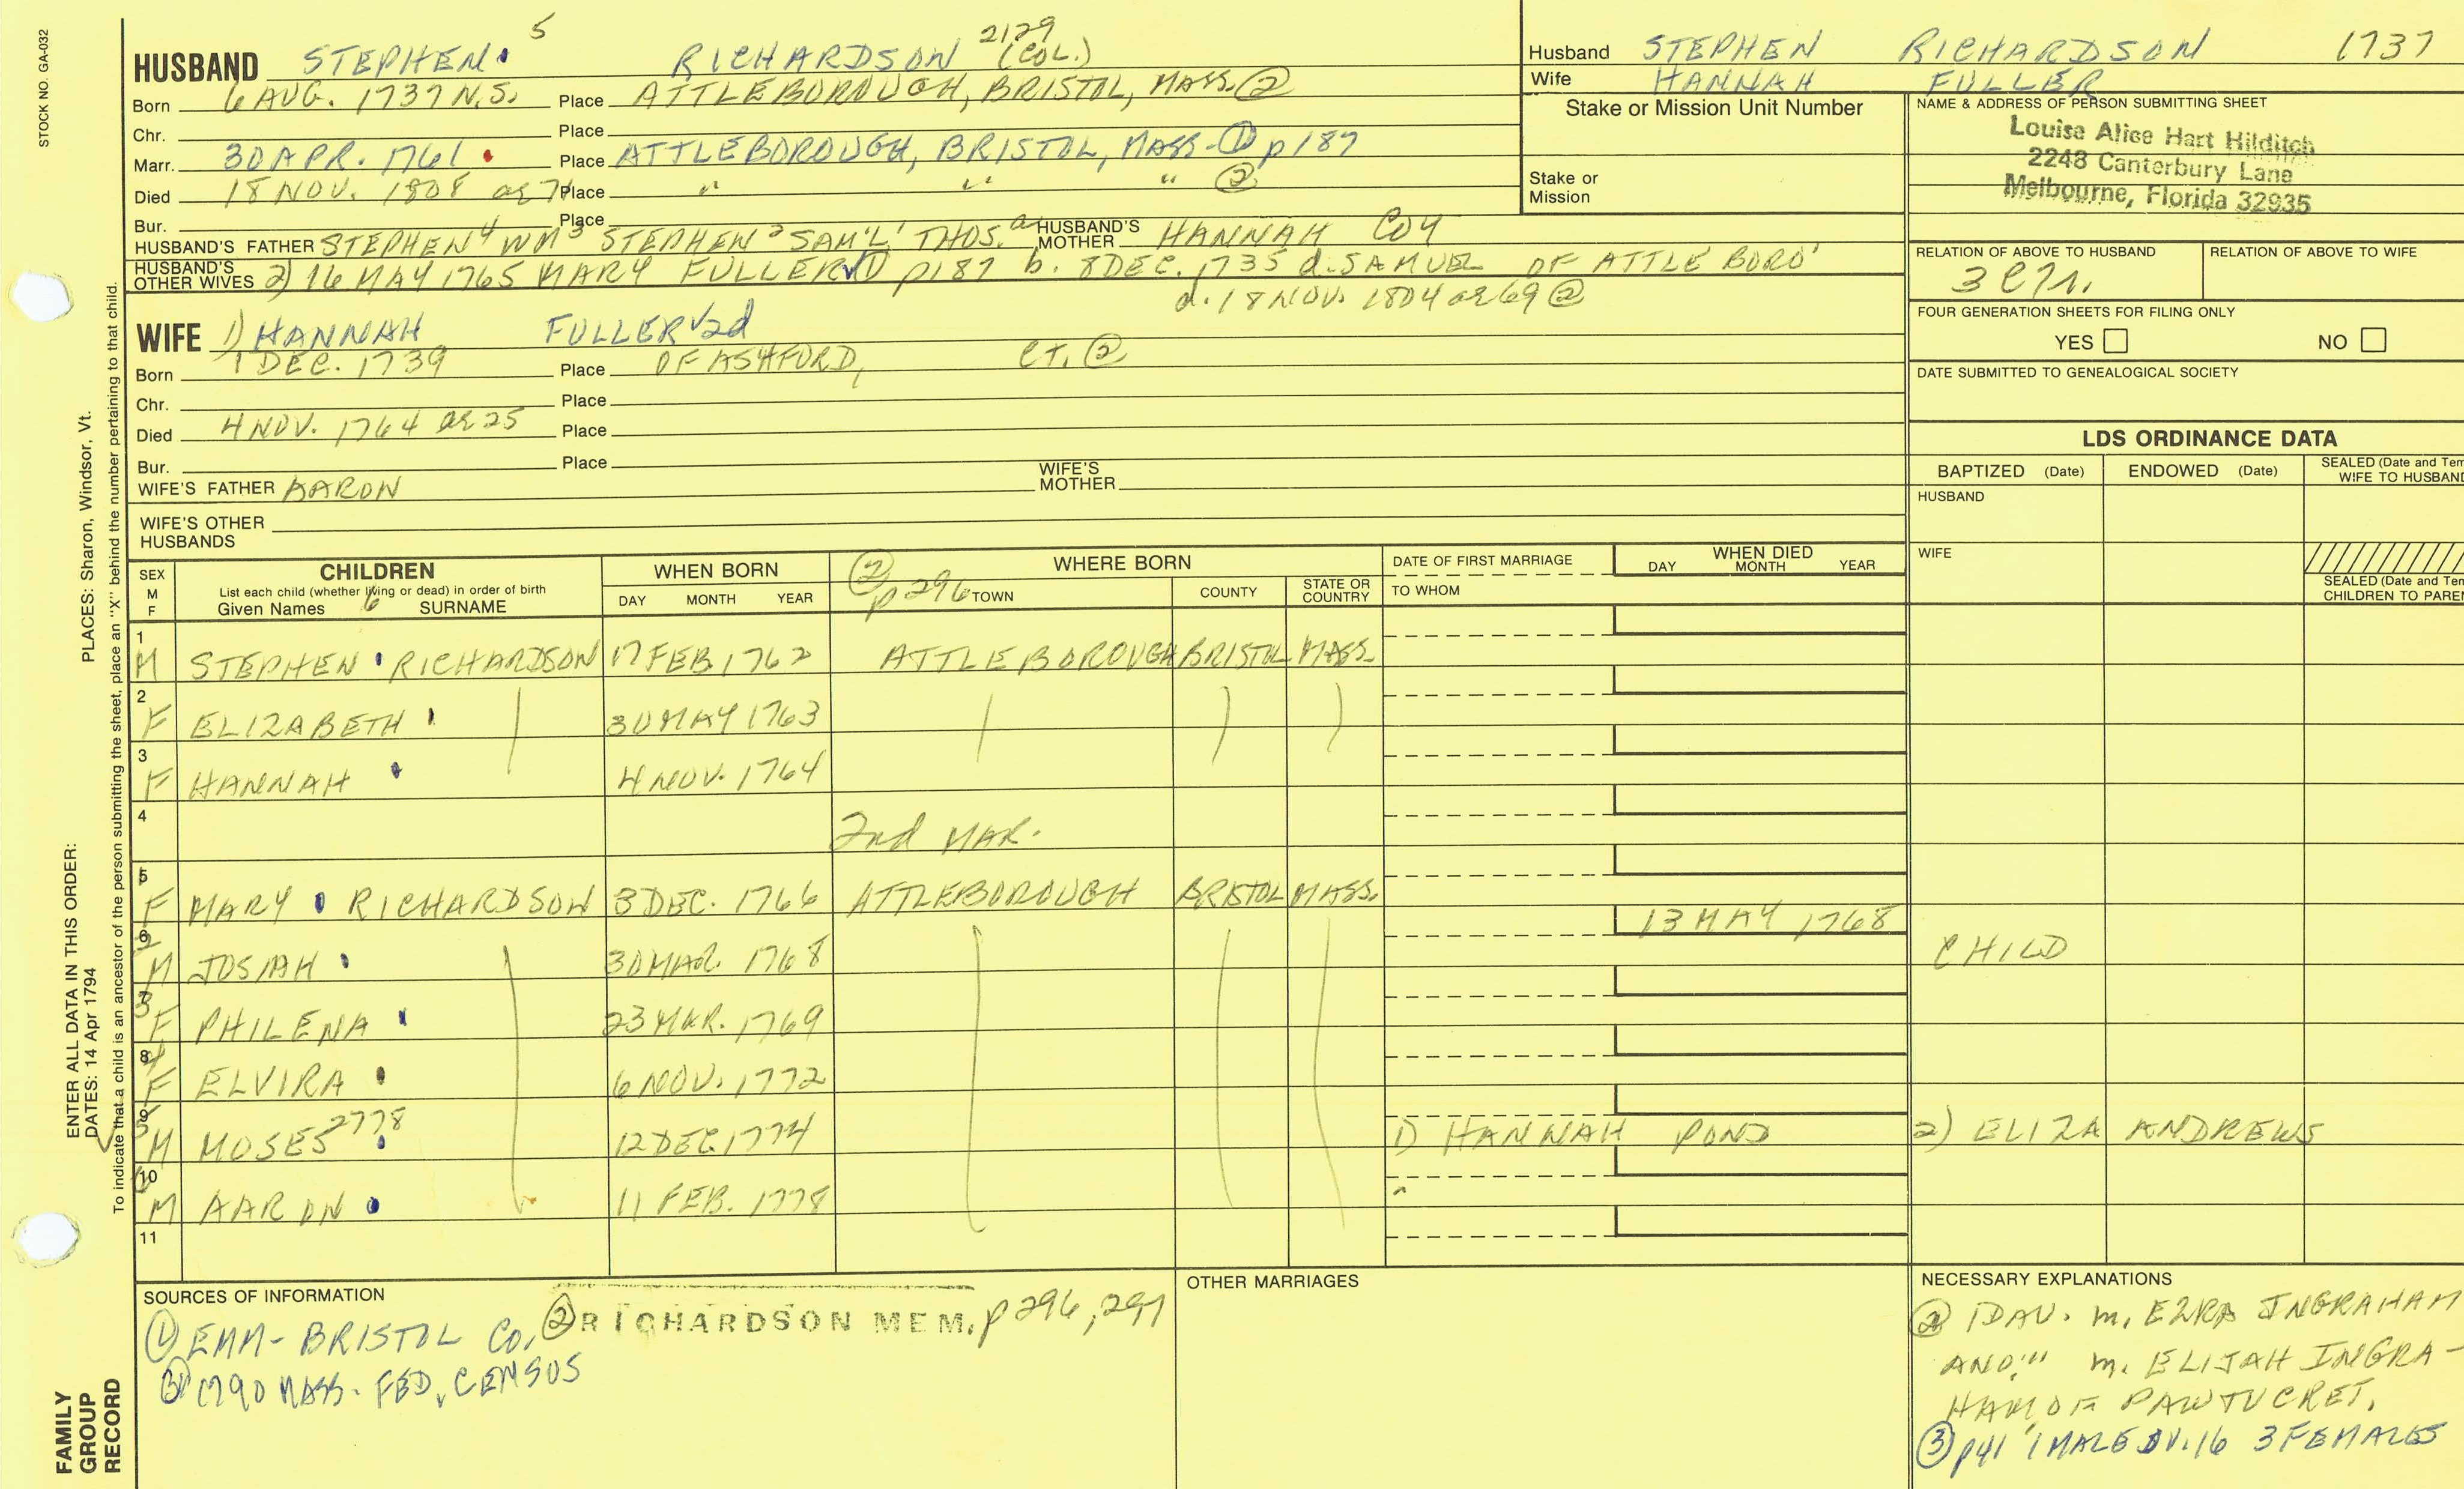 STOCK NO. GA-032
PLACES: Sharon, Windsor, Vt.
ENTER ALL DATA IN THIS ORDER:
DATES: 14 Apr 1794
To indicate that a child is an ancestor of the person submitting the sheet, place an "X" behind the number pertaining to that child.
FAMILY
GROUP
RECORD
HUSBAND STEPHEN 5 RICHARDSON 2129 (COL.)
Born 6 AUG. 1737 N.S. Place ATTLEBOROUGH, BRISTOL, MASS. ②
Chr. Place
Marr. 30 APR. 1761 Place ATTLEBOROUGH, BRISTOL, MASS- ① p187
Died 18 NOV. 1808 ae 71 Place " " " ②
Bur. Place
HUSBAND'S FATHER STEPHEN 4 WM 3 STEPHEN 2 SAM'L ' THOS. a HUSBAND'S MOTHER HANNAH COY
HUSBAND'S OTHER WIVES 2) 16 MAY 1765 MARY FULLER ① p187 b. 8 DEC. 1735 d. SAMUEL OF ATTLE BORO'
d. 18 NOV. 1804 ae 69 ②
WIFE 1) HANNAH FULLER √2d
Born 1 DEC. 1739 Place OF ASHFORD, CT. ②
Chr. Place
Died 4 NOV. 1764 ae 25 Place
Bur. Place
WIFE'S FATHER AARON WIFE'S MOTHER
WIFE'S OTHER HUSBANDS
Husband STEPHEN RICHARDSON 1737
Wife HANNAH FULLER
Stake or Mission Unit Number
Stake or Mission
NAME & ADDRESS OF PERSON SUBMITTING SHEET
Louise Alice Hart Hilditch
2248 Canterbury Lane
Melbourne, Florida 32935
RELATION OF ABOVE TO HUSBAND RELATION OF ABOVE TO WIFE
FOUR GENERATION SHEETS FOR FILING ONLY
YES NO
DATE SUBMITTED TO GENEALOGICAL SOCIETY
LDS ORDINANCE DATA
BAPTIZED (Date) ENDOWED (Date) SEALED (Date and Tem
WIFE TO HUSBAND
HUSBAND
WIFE
SEALED (Date and Tem
CHILDREN TO PAREN
SEX M F
CHILDREN
List each child (whether living or dead) in order of birth
Given Names 6 SURNAME
WHEN BORN
DAY MONTH YEAR
② p 296
WHERE BORN
TOWN COUNTY STATE OR COUNTRY
DATE OF FIRST MARRIAGE
TO WHOM
WHEN DIED
DAY MONTH YEAR
1 M STEPHEN RICHARDSON 17 FEB 1762 ATTLEBOROUGH BRISTOL MASS.
2 F ELIZABETH 30 MAY 1763
3 F HANNAH 4 NOV. 1764
4 2nd MAR.
5 F MARY RICHARDSON 3 DEC. 1766 ATTLEBOROUGH BRISTOL MASS.
6 2 M JOSIAH 30 MAR. 1768 13 MAY 1768 CHILD
7 3 F PHILENA 23 MAR. 1769
8 4 F ELVIRA 6 NOV. 1772
9 5 M MOSES 2778 12 DEC. 1774 1) HANNAH POND 2) ELIZA ANDREWS
10 6 M AARON 11 FEB. 1778
11
SOURCES OF INFORMATION
① EMM- BRISTOL CO. ② RICHARDSON MEM. p 296, 297
③ 1790 MASS. FED. CENSUS
OTHER MARRIAGES
NECESSARY EXPLANATIONS
② 1 DAU. m. EZRA INGRAHAM
AND " m. ELIJAH INGRA-
HAM OF PAWTUCKET.
③ p41 1 MALE OV. 16 3 FEMALES